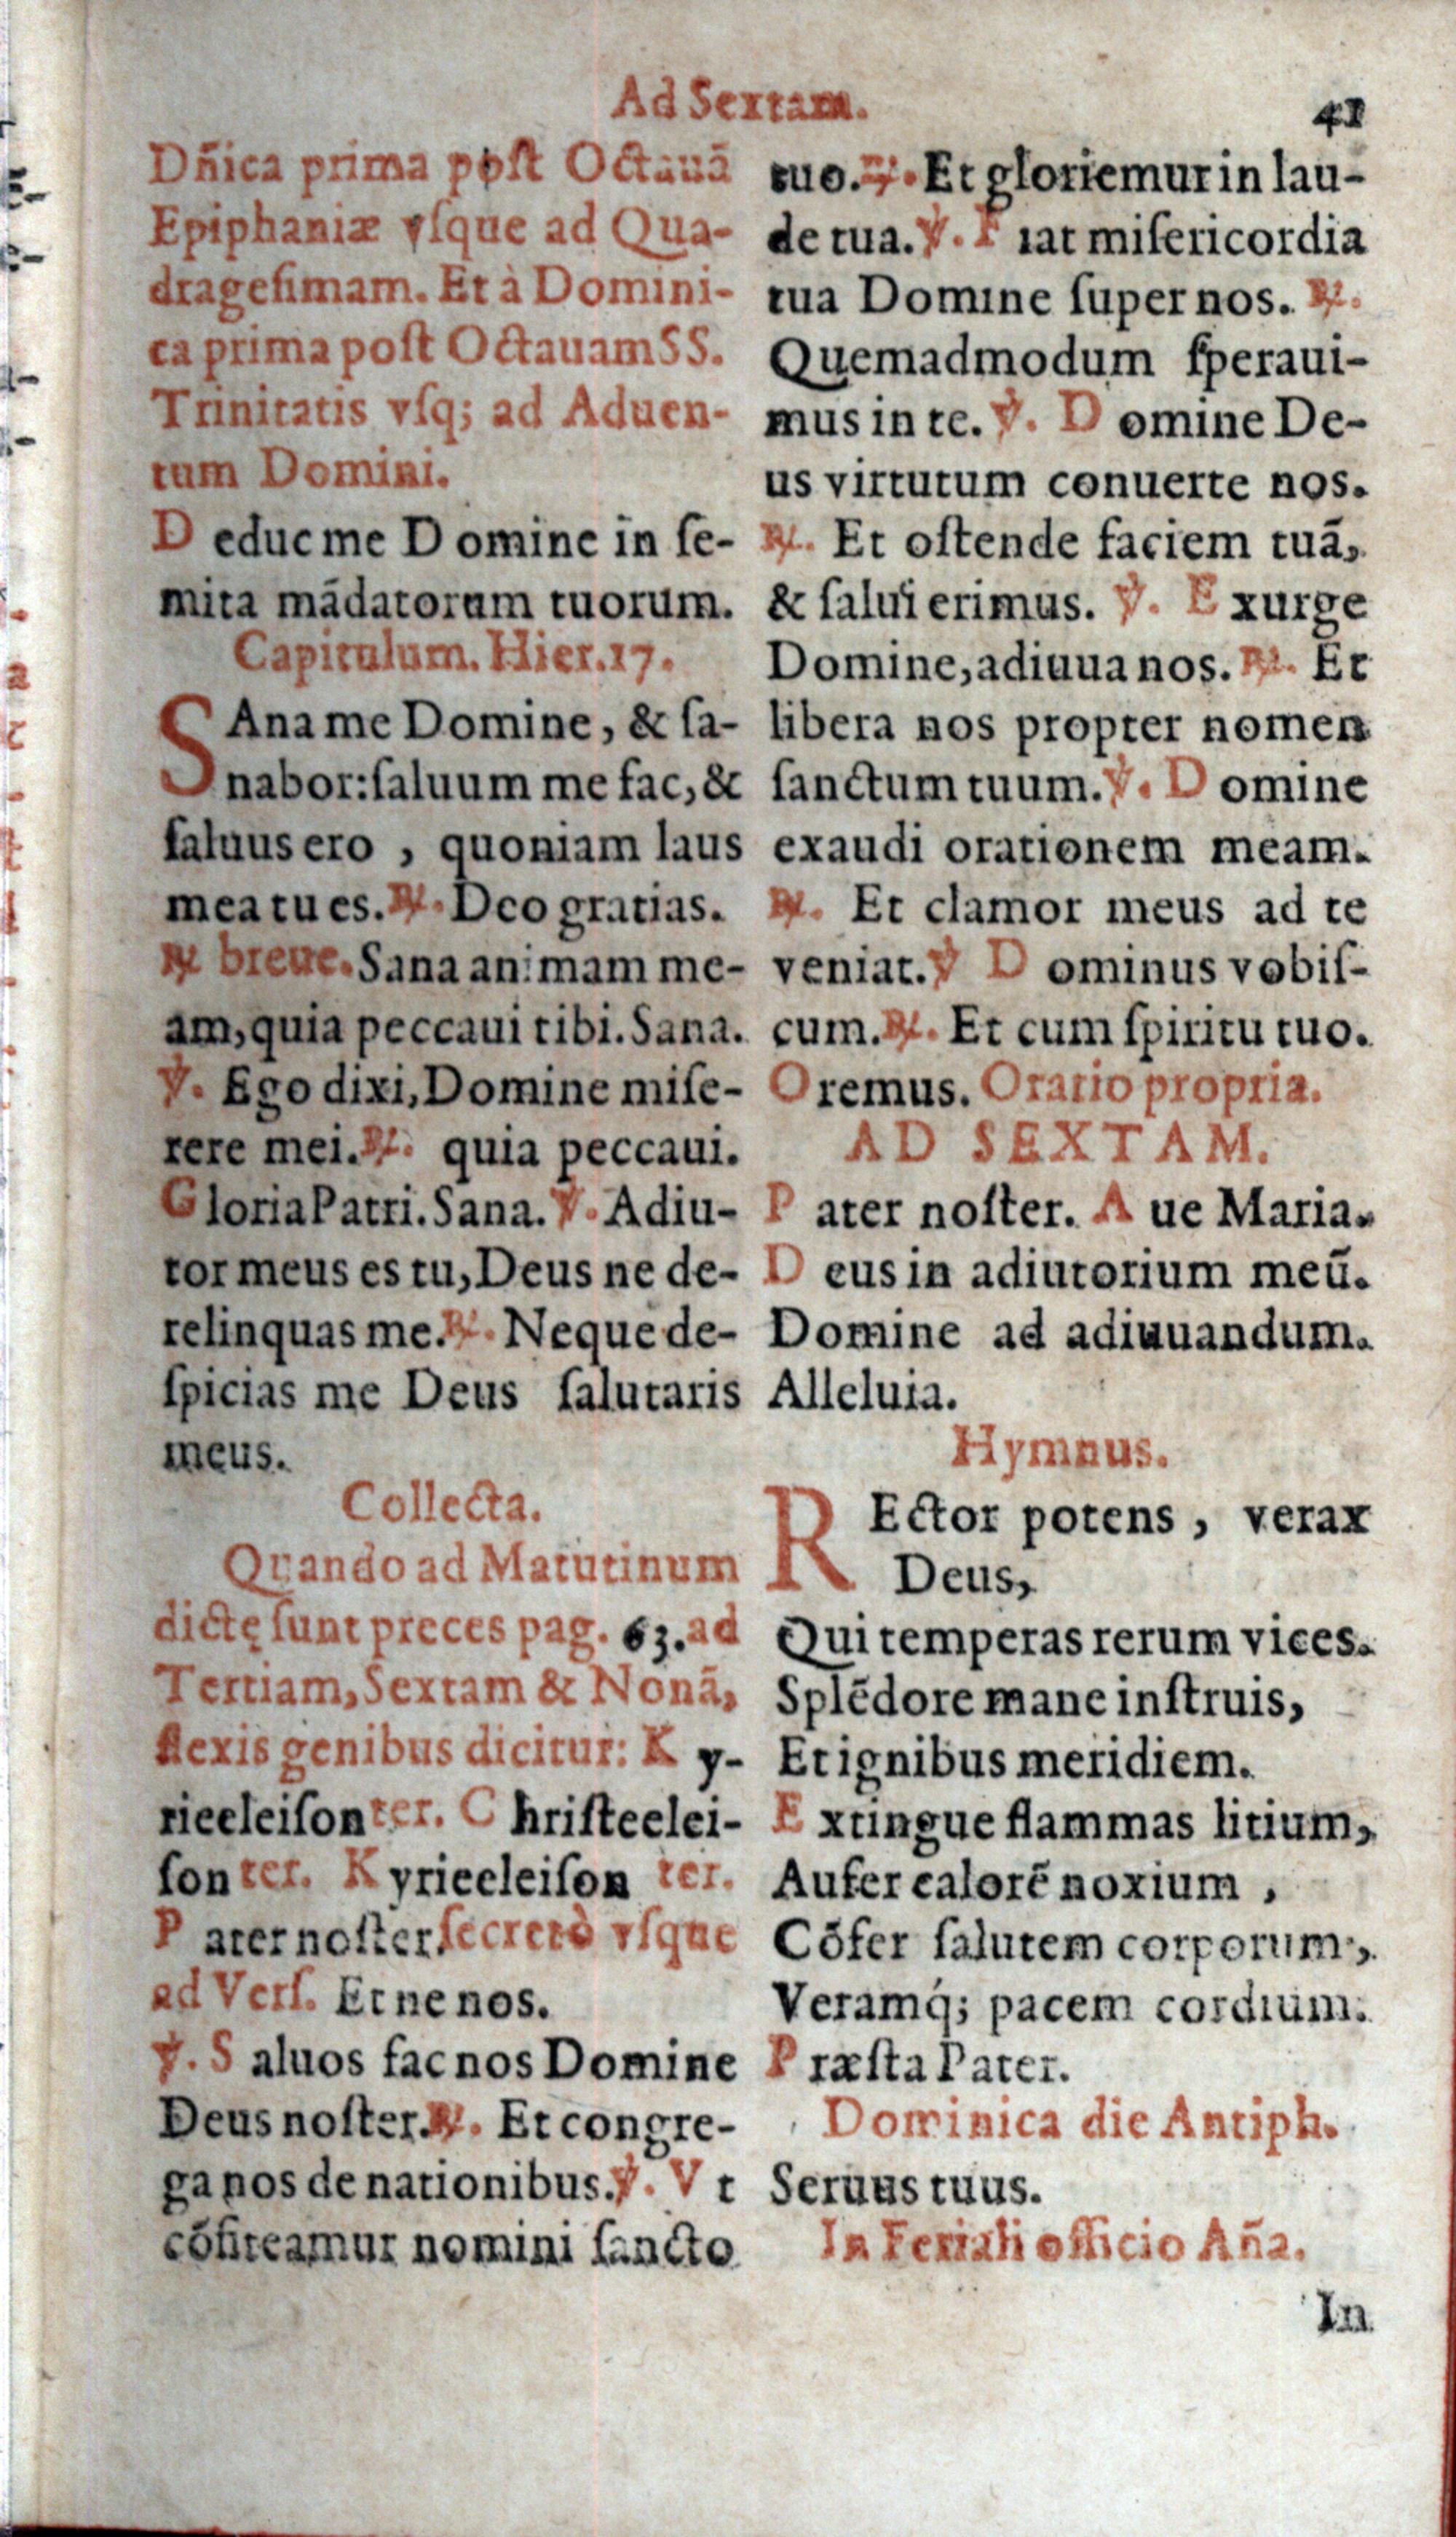 Ad Sextam.
41
Dñica prima poſt Octauã
Epiphaniæ vſque ad Qua-
drageſimam. Et à Domini-
ca prima poſt Octauam SS.
Trinitatis vſq; ad Aduen-
tum Domini.
Deduc me Domine in ſe-
mita mãdatorum tuorum.
Capitulum. Hier. 17.
SAna me Domine, & ſa-
nabor: ſaluum me fac, &
ſaluus ero, quoniam laus
mea tu es. ℟. Deo gratias.
℟ breue. Sana animam me-
am, quia peccaui tibi. Sana.
℣. Ego dixi, Domine miſe-
rere mei. ℟. quia peccaui.
Gloria Patri. Sana. ℣. Adiu-
tor meus es tu, Deus ne de-
relinquas me. ℟. Neque de-
ſpicias me Deus ſalutaris
meus.
Collecta.
Quando ad Matutinum
dictę ſunt preces pag. 63. ad
Tertiam, Sextam & Nonã,
flexis genibus dicitur: Ky-
rieeleiſon ter. Chriſteelei-
ſon ter. Kyrieeleiſon ter.
Pater noſter. ſecretò vſque
ad Verſ. Et ne nos.
℣. Saluos fac nos Domine
Deus noſter. ℟. Et congre-
ga nos de nationibus. ℣. Vt
cõfiteamur nomini ſancto
tuo. ℟. Et gloriemur in lau-
de tua. ℣. Fiat miſericordia
tua Domine ſuper nos. ℟.
Quemadmodum ſperaui-
mus in te. ℣. Domine De-
us virtutum conuerte nos.
℟. Et oſtende faciem tuã,
& ſalui erimus. ℣. Exurge
Domine, adiuua nos. ℟. Et
libera nos propter nomen
ſanctum tuum. ℣. Domine
exaudi orationem meam.
℟. Et clamor meus ad te
veniat. ℣ Dominus vobiſ-
cum. ℟. Et cum ſpiritu tuo.
Oremus. Oratio propria.
AD SEXTAM.
Pater noſter. Aue Maria.
Deus in adiutorium meũ.
Domine ad adiuuandum.
Alleluia.
Hymnus.
REctor potens, verax
Deus,
Qui temperas rerum vices.
Splẽdore mane inſtruis,
Et ignibus meridiem.
Extingue flammas litium,
Aufer calorẽ noxium,
Cõfer ſalutem corporum,
Veramq́; pacem cordium.
Præſta Pater.
Dominica die Antiph.
Seruus tuus.
In Feriali officio Aña.
In